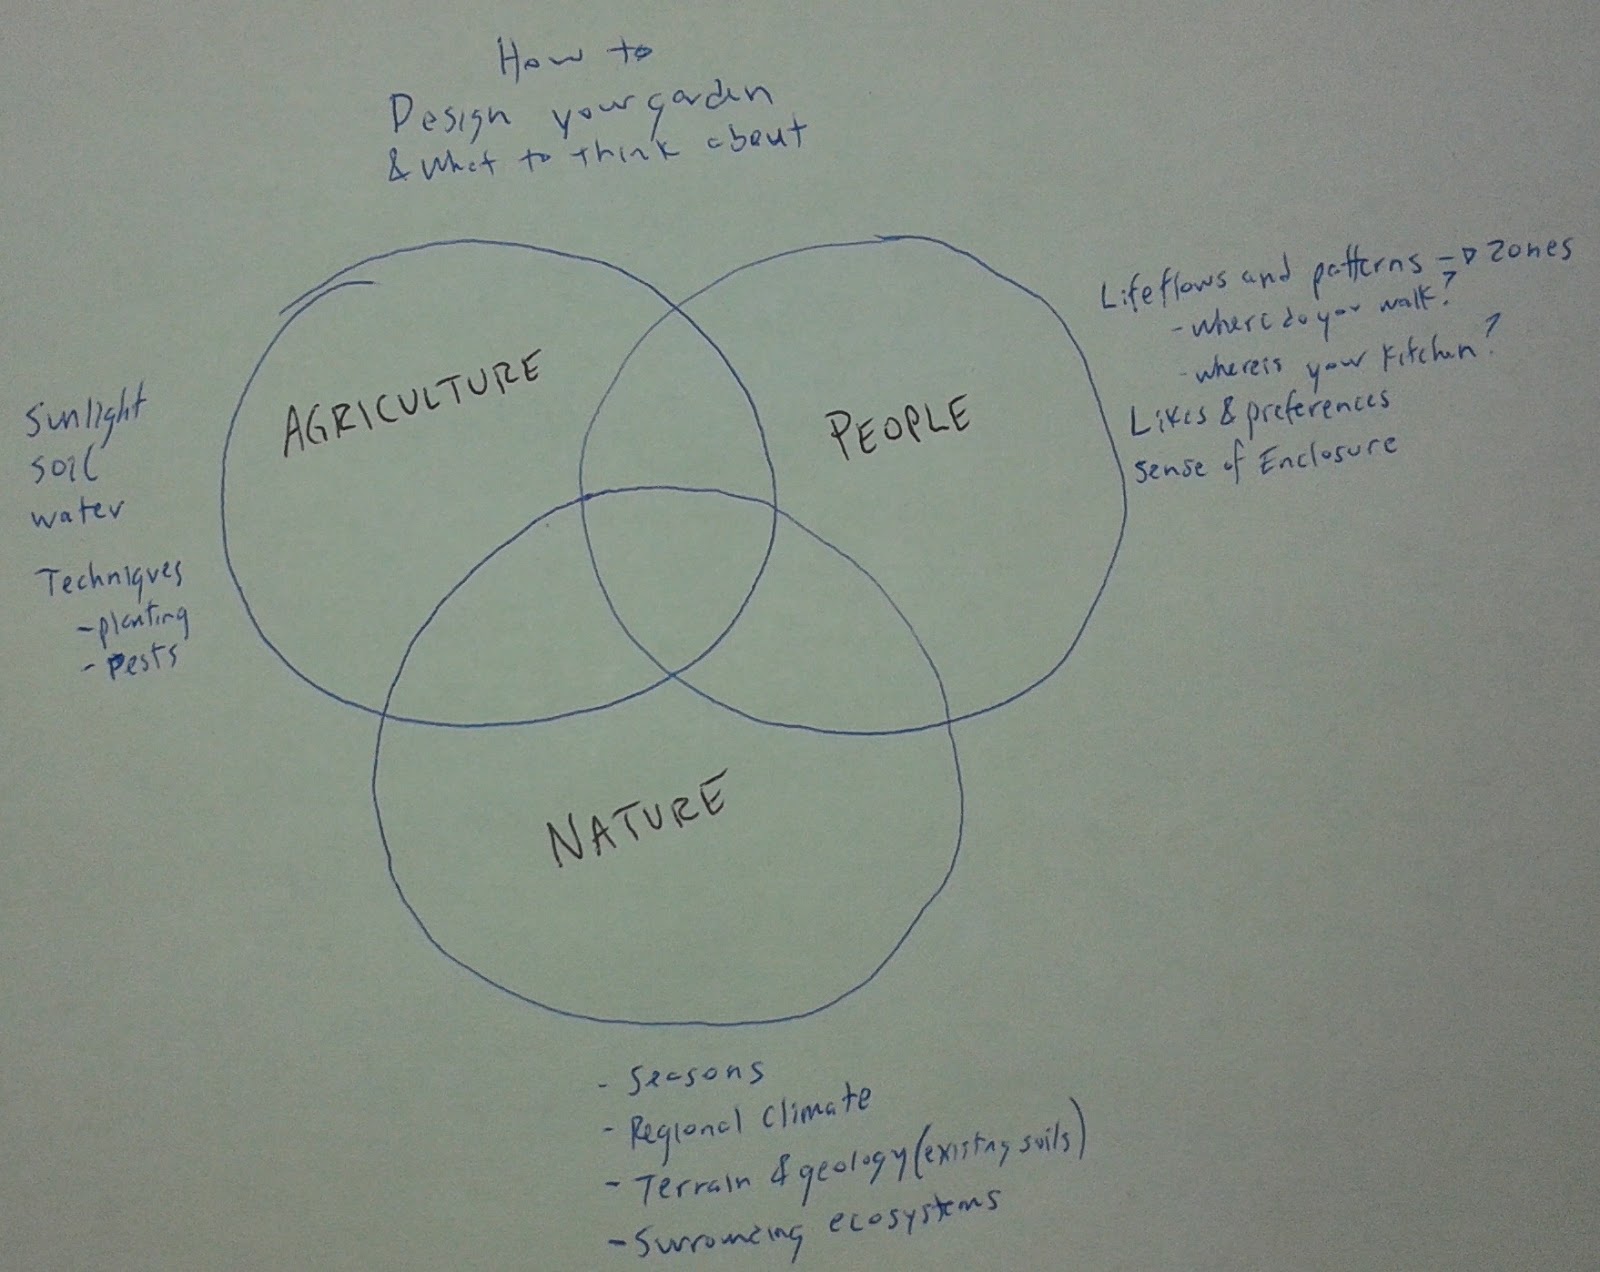 How to
Design your garden
& what to think about
AGRICULTURE
PEOPLE
NATURE
Sunlight
soil
water
Techniques
- planting
- Pests
Lifeflows and patterns → Zones
- where do you walk?
- where is your kitchen?
Likes & preferences
sense of Enclosure
- Seasons
- Regional climate
- Terrain & geology (existing soils)
- Surrounding ecosystems